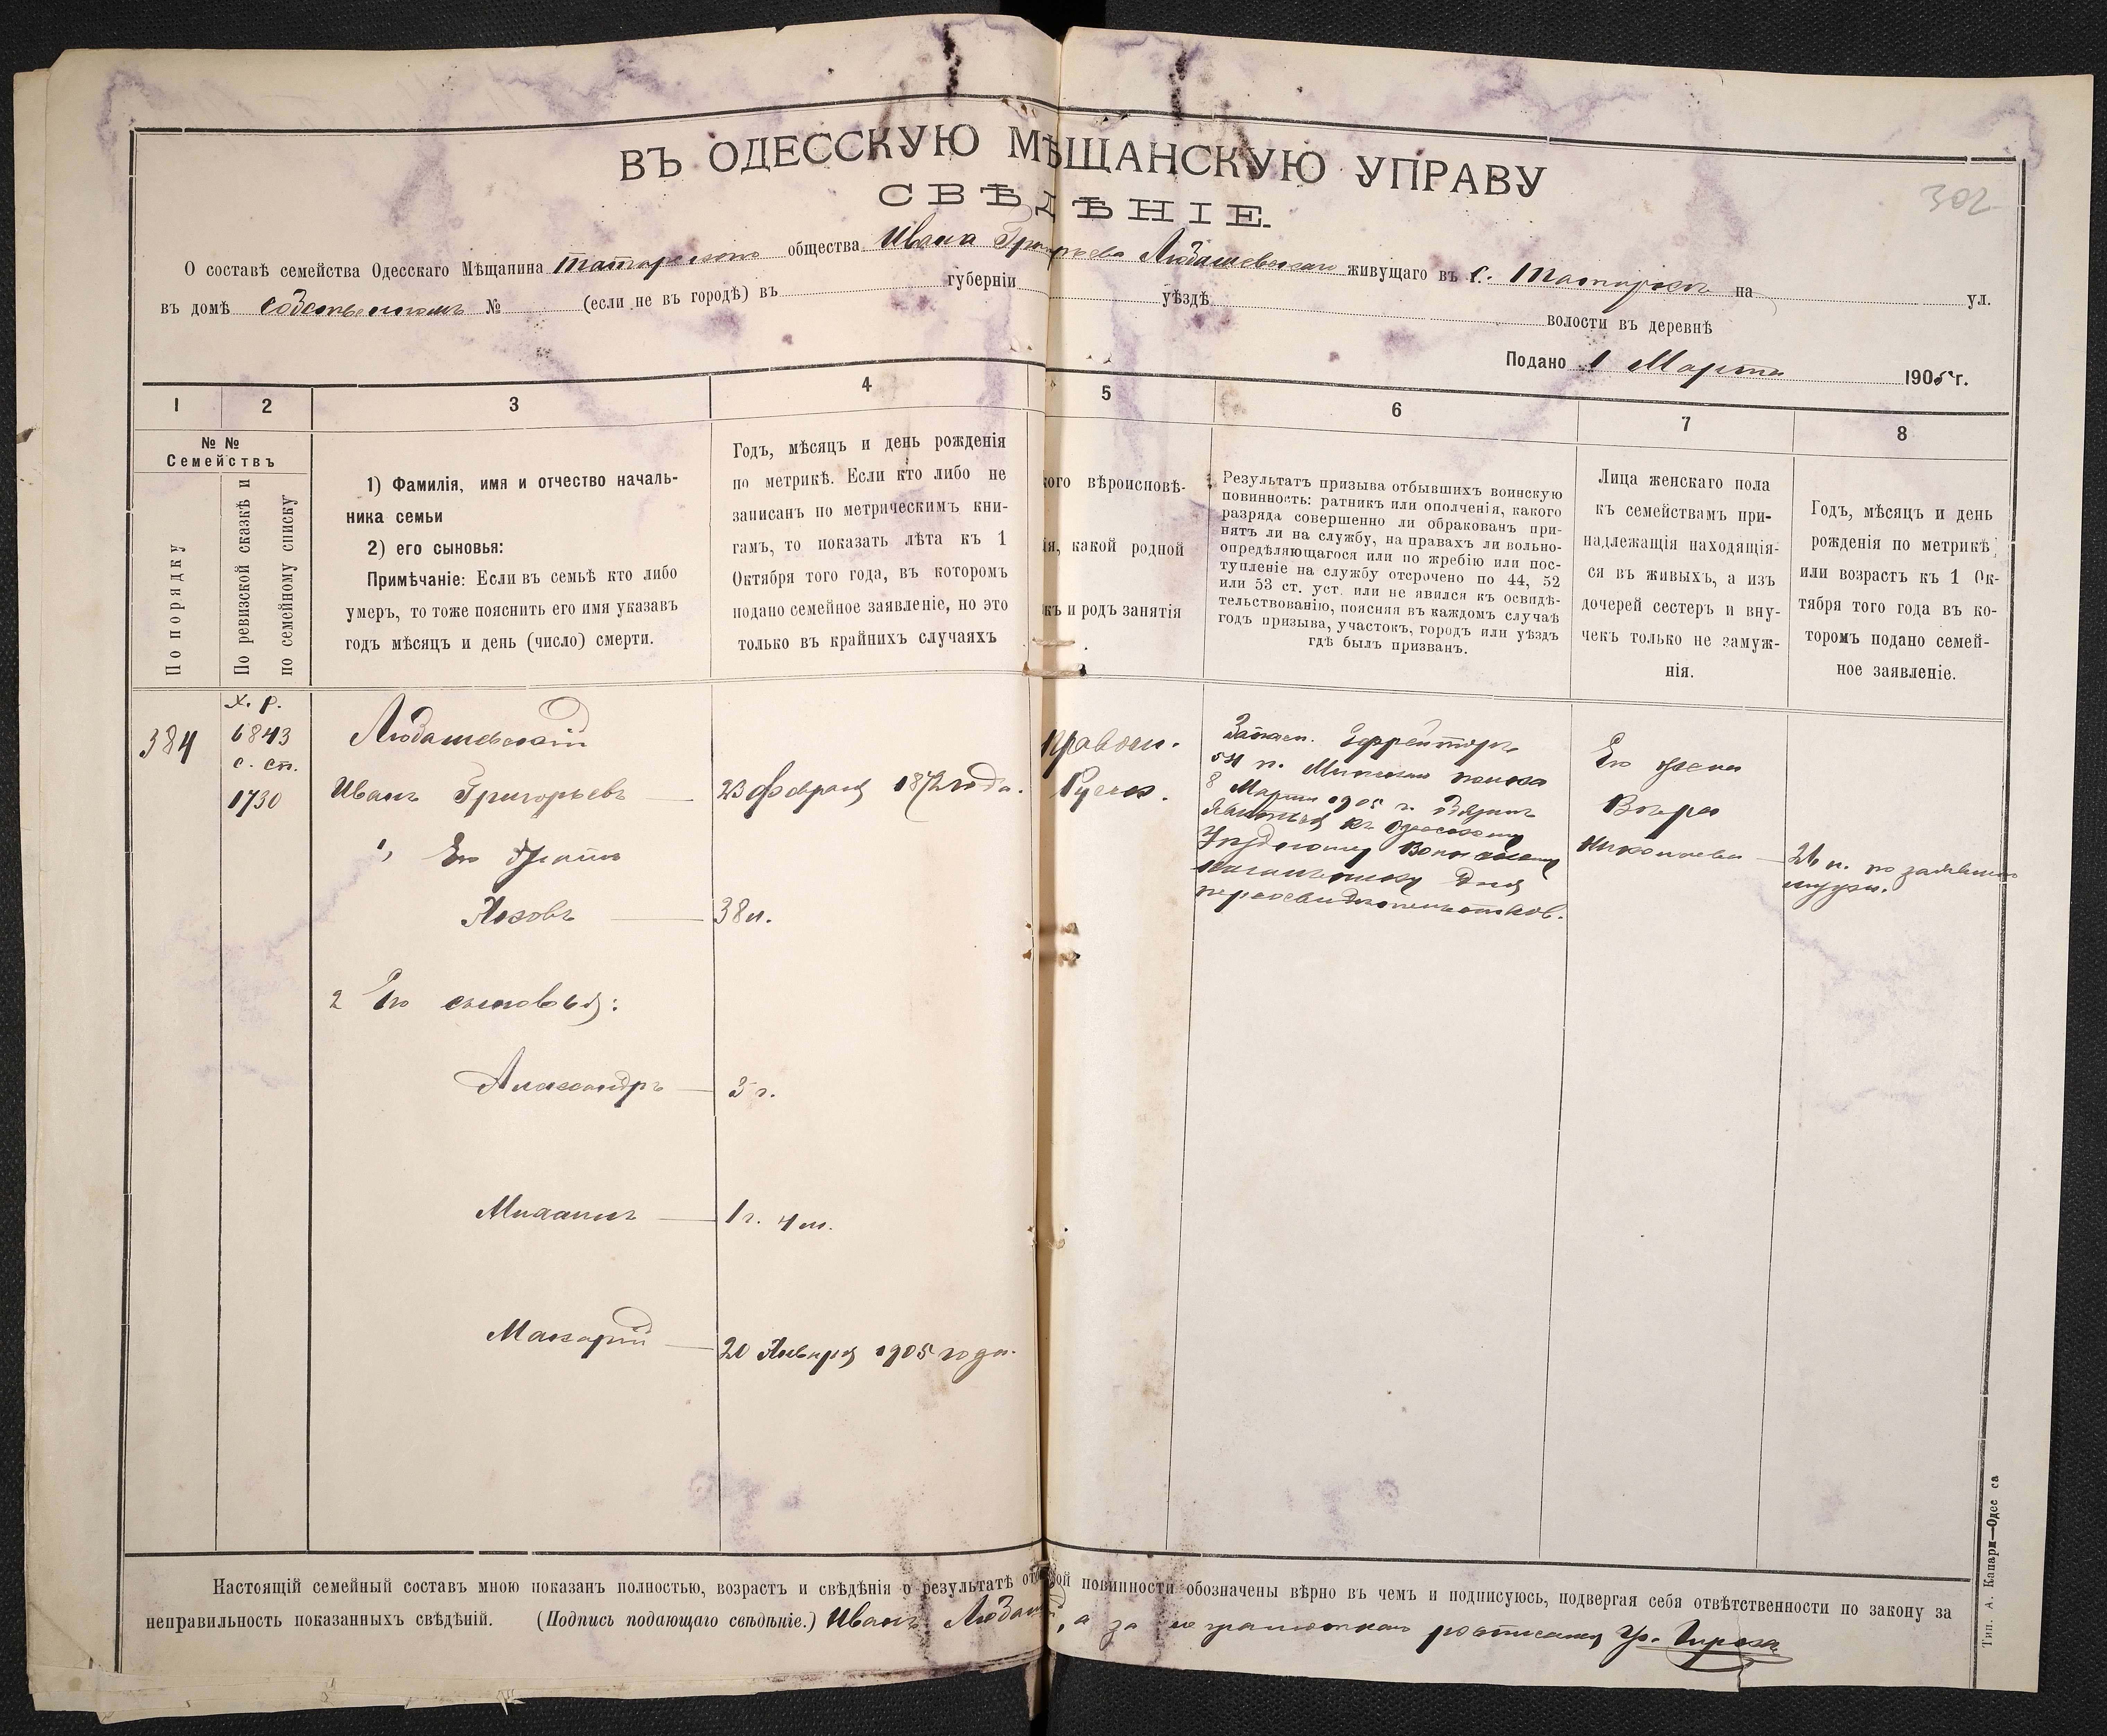 302
ВЪ ОДЕССКУЮ МѢЩАНСКУЮ УПРАВУ
СВѢДѢНІЕ.
О составѣ семейства Одесскаго Мѣщанина Татарскаго общества Ивана Григорьева Людашевскаго живущаго въ с. Татаркѣ на ул.
въ домѣ собственномъ № (если не въ городѣ) въ губерніи уѣздѣ волости въ деревнѣ
Подано 1 Марта 1905 г.
1 2 3 4 5 6 7 8
№ №
Семействъ
По порядку
По ревизской сказкѣ и
по семейному списку
1) Фамилія, имя и отчество началь-
ника семьи
2) его сыновья:
Примѣчаніе: Если въ семьѣ кто либо
умеръ, то тоже пояснить его имя указавъ
годъ мѣсяцъ и день (число) смерти.
Годъ, мѣсяцъ и день рожденія
по метрикѣ. Если кто либо не
записанъ по метрическимъ кни-
гамъ, то показать лѣта къ 1
Октября того года, въ которомъ
подано семейное заявленіе, но это
только въ крайнихъ случаяхъ
кого вѣроисповѣ-
ія, какой родной
къ и родъ занятія
Результатъ призыва отбывшихъ воинскую
повинность: ратникъ или ополченія, какого
разряда совершенно ли обракованъ при-
нятъ ли на службу, на правахъ ли вольно-
опредѣляющагося или по жребію или пос-
тупленіе на службу отсрочено по 44, 52
или 53 ст. уст. или не явился къ освидѣ-
тельствованію, поясняя въ каждомъ случаѣ
годъ призыва, участокъ, городъ или уѣздъ
гдѣ былъ призванъ.
Лица женскаго пола
къ семействамъ при-
надлежащія находящія-
ся въ живыхъ, а изъ
дочерей сестеръ и вну-
чекъ только не замуж-
нія.
Годъ, мѣсяцъ и день
рожденія по метрикѣ
или возрастъ къ 1 Ок-
тября того года въ ко-
торомъ подано семей-
ное заявленіе.
384
Х. р.
6843
с. сп.
1730
Людашевскій
Иванъ Григорьевъ
23 февраля 1872 года.
1) Его братъ
Яковъ 38 л.
2 Его сыновья:
Александръ 3 г.
Михаилъ 1 г. 4 м.
Макарій 20 Января 1905 года.
Правосл.
Русск.
Запасн. Ефрейторъ
54 п. Минскаго полка
8 Марта 1905 г. обязанъ
явиться къ Одесскому
Уѣздному Воинскому
Начальнику для
переосвидѣтельствов.
Его жена
Вѣра
Николаева
26 л. по заявленію
мужа.
Настоящій семейный составъ мною показанъ полностью, возрастъ и свѣдѣнія о результатѣ от ой повинности обозначены вѣрно въ чемъ и подписуюсь, подвергая себя отвѣтственности по закону за
неправильность показанныхъ свѣдѣній. (Подпись подающаго свѣдѣніе.) Иванъ , а за неграмотнаго росписался
Тип. А. Капари—Одесса